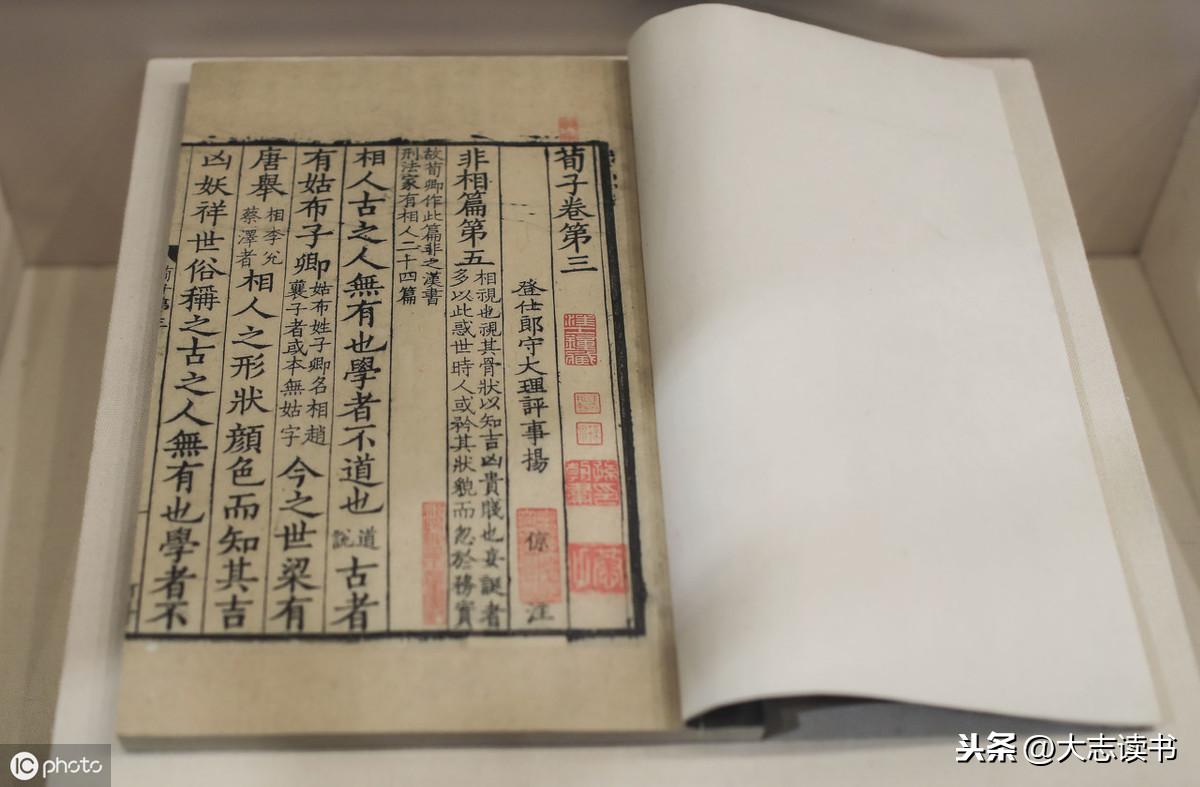 荀子卷第三
登仕郎守大理評事揚倞注
非相篇第五相視也視其骨狀以知吉凶貴賤也妄誕者多以此惑世時人或矜其狀貌而忽於務實
故荀卿作此篇非之漢書刑法家有相人二十四篇
相人古之人無有也學者不道也道說古者
有姑布子卿姑布姓子卿名相趙襄子者或本無姑字今之世梁有
唐舉相李兊蔡澤者相人之形狀顏色而知其吉
凶妖祥世俗稱之古之人無有也學者不
IC photo
头条 @大志读书